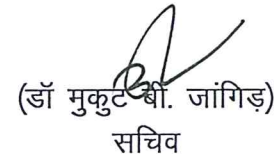 (डॉ मुकुट बी. जांगिड़)
सचिव